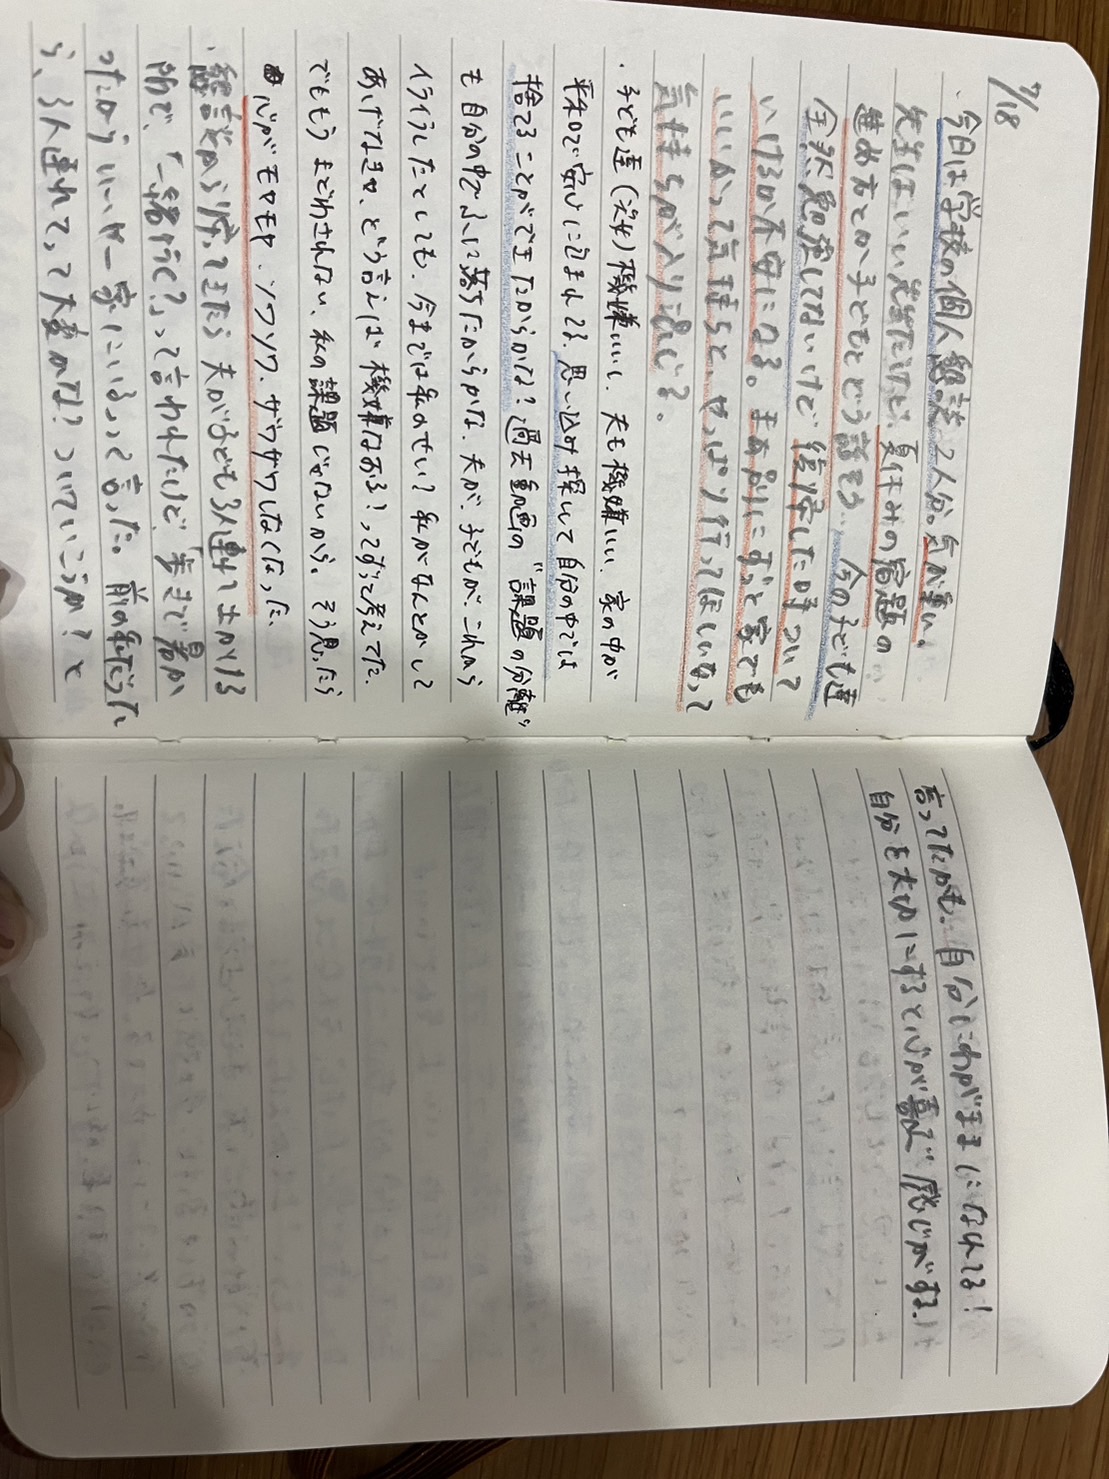 7/18
・今日は学校の個人懇談2人分。気が重い。
先生はいい先生だけど、夏休みの宿題の
進め方とか子どもとどう話そう、今の子ども達
全然勉強してないけど復帰した時ついて
いけるか不安になる。まあ別にずっと家でも
いいかって気持ちと、やっぱり行ってほしいなって
気持ちが入り混じる。
・子ども達(次女)機嫌いいし、夫も機嫌いい、家の中が
平和で安心に包まれてる。思い込み探しで自分の中では
捨てることができたからかな?過去動画の"課題の分離"
も自分の中でふに落ちたからかな、夫が、子どもが、これから
イライラしたとしても、今までは私のせい?私がなんとかして
あげなきゃ、どう言えば機嫌なおる?ってずっと考えてた。
でももうまどわされない、私の課題じゃないから。そう思ったら
心がモヤモヤ、ソワソワ、ザワザワしなくなった。
・懇談から帰ってきたら夫が子ども3人連れて出かける
所で、「一緒行く?」って言われたけど、「実まで暑か
ったからいいや〜家にいる」って言った。前の私だった
ら、3人連れてって大変かな?ついていこうか?と
言ってたかも。自分にわがままになれてる!
自分を大切にすると心が喜んで感じがする。